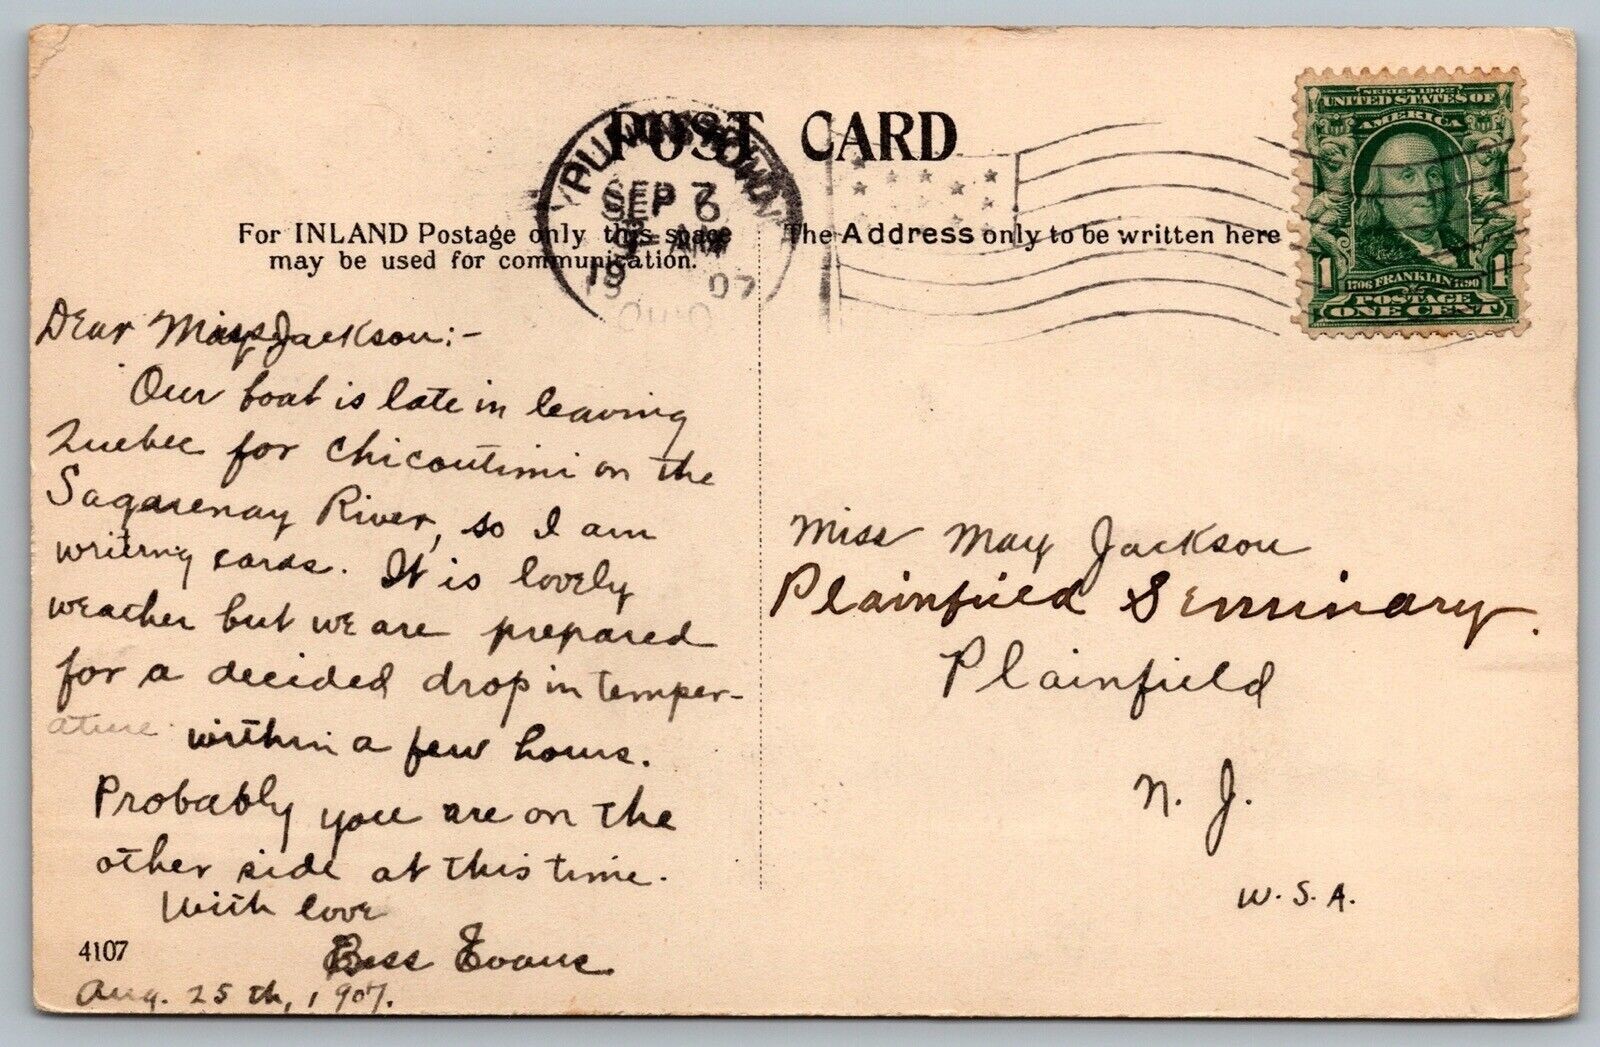 POST CARD
SEP 7
SEP 6
19 07
For INLAND Postage only this space
may be used for communication.
The Address only to be written here
SERIES 1902
UNITED STATES OF
AMERICA
1 1
1706 FRANKLIN 1790
POSTAGE
ONE CENT
Dear Miss Jackson:-
Our boat is late in leaving
Quebec for Chicoutimi on the
Saguenay River, so I am
writing cards. It is lovely
weather but we are prepared
for a decided drop in temper-
ature within a few hours.
Probably you are on the
other side at this time.
With love
Bess Evans
Aug. 25th, 1907.
4107
Miss May Jackson
Plainfield Seminary.
Plainfield
N. J.
U.S.A.